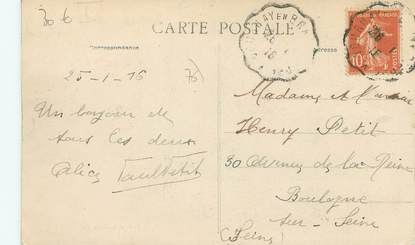 30 €
CARTE POSTALE
Correspondance
Adresse
25-1-16
Un bonjour de
tous les deux
Alice Paul Petit
Madame et
Henry Petit
30 Avenue de la Reine
Boulogne
sur-Seine
(Seine)
10